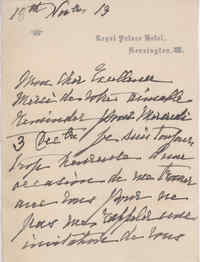 18th Nov 13
Royal Palace Hotel,
Kensington, W.
Mon cher Excellence
Merci de votre aimable
Reminder pour Mercredi
3 Dec je suis toujours
trop heureuse d'une
occasion de me trouver
avec vous pour ne
pas me rappeler une
invitation de vous